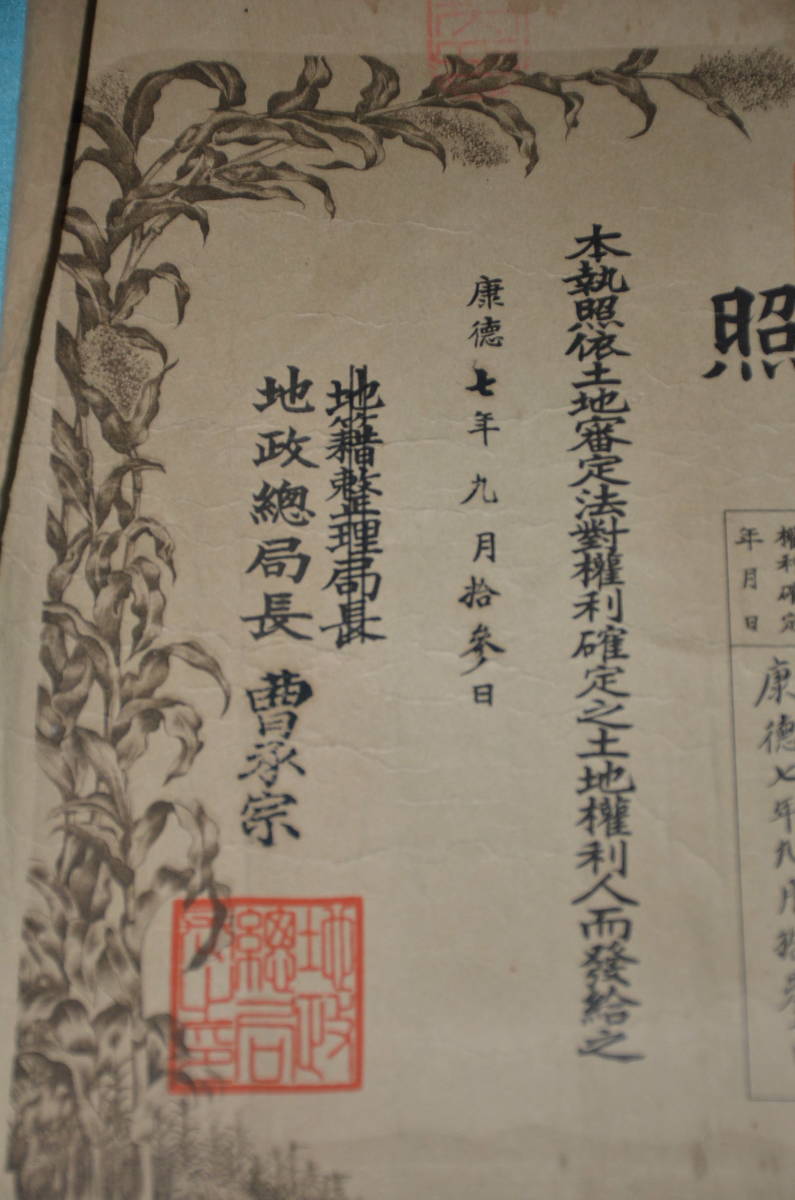 照
權利確定
年月日
康德七年九月拾參日
本執照依土地審定法對權利確定之土地權利人而發給之
康德七年九月拾參日
地籍整理局長
地政總局長 曹承宗
地政
總局
長之印